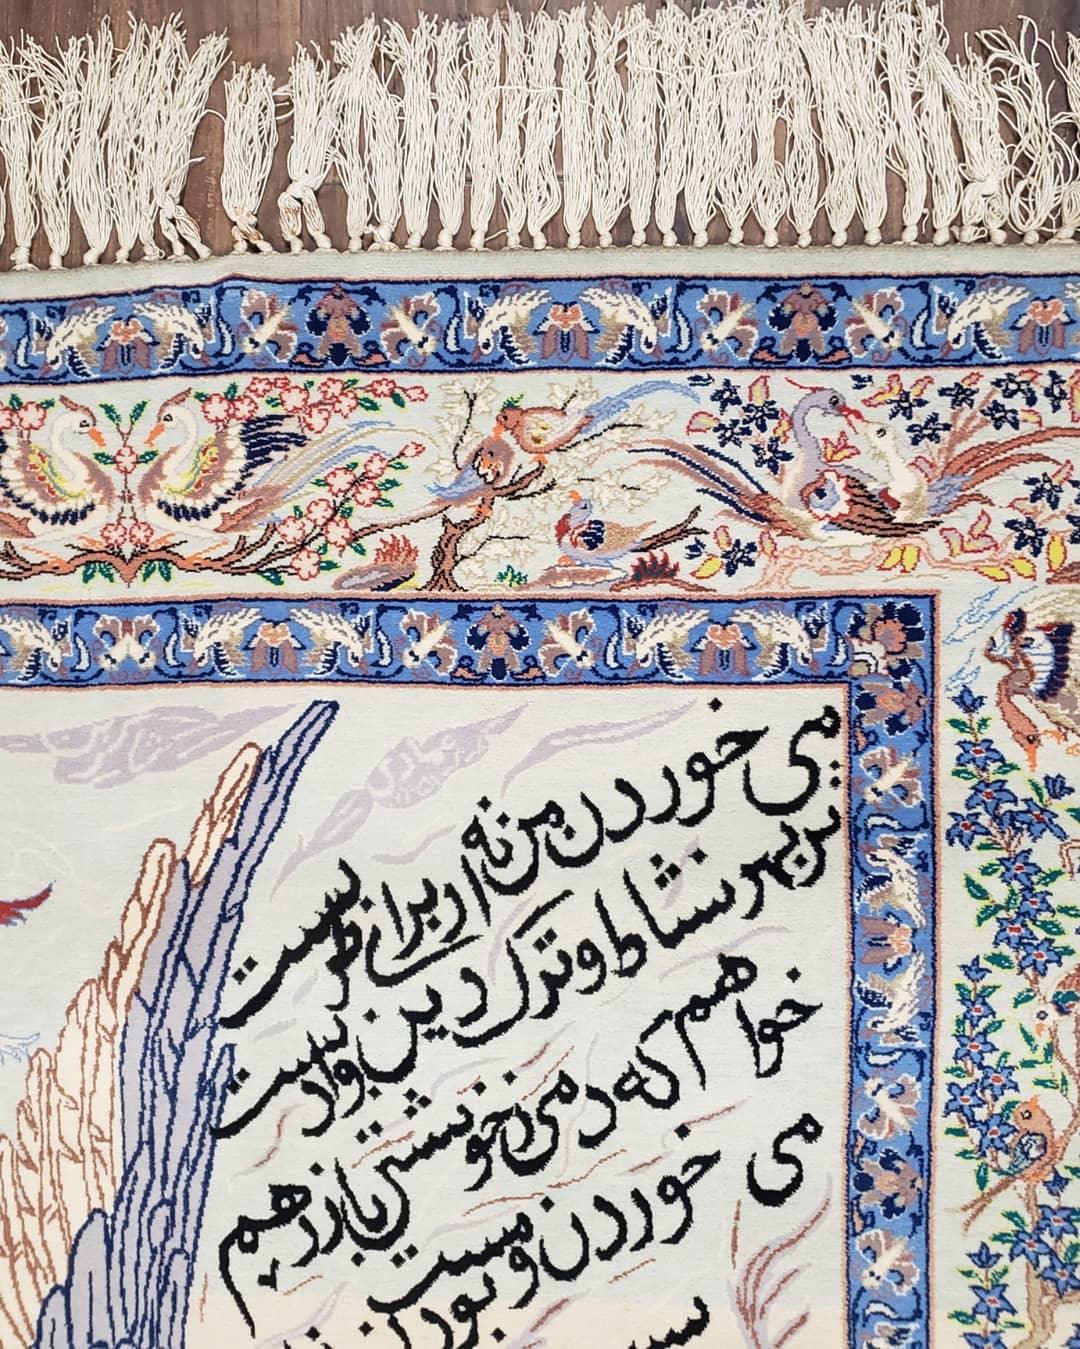 می خوردن من نه از برای طرب است
نز بهر نشاط و ترک دین و ادب است
خواهم که دمی ز خویشتن باز رهم
می خوردن و مست بودن